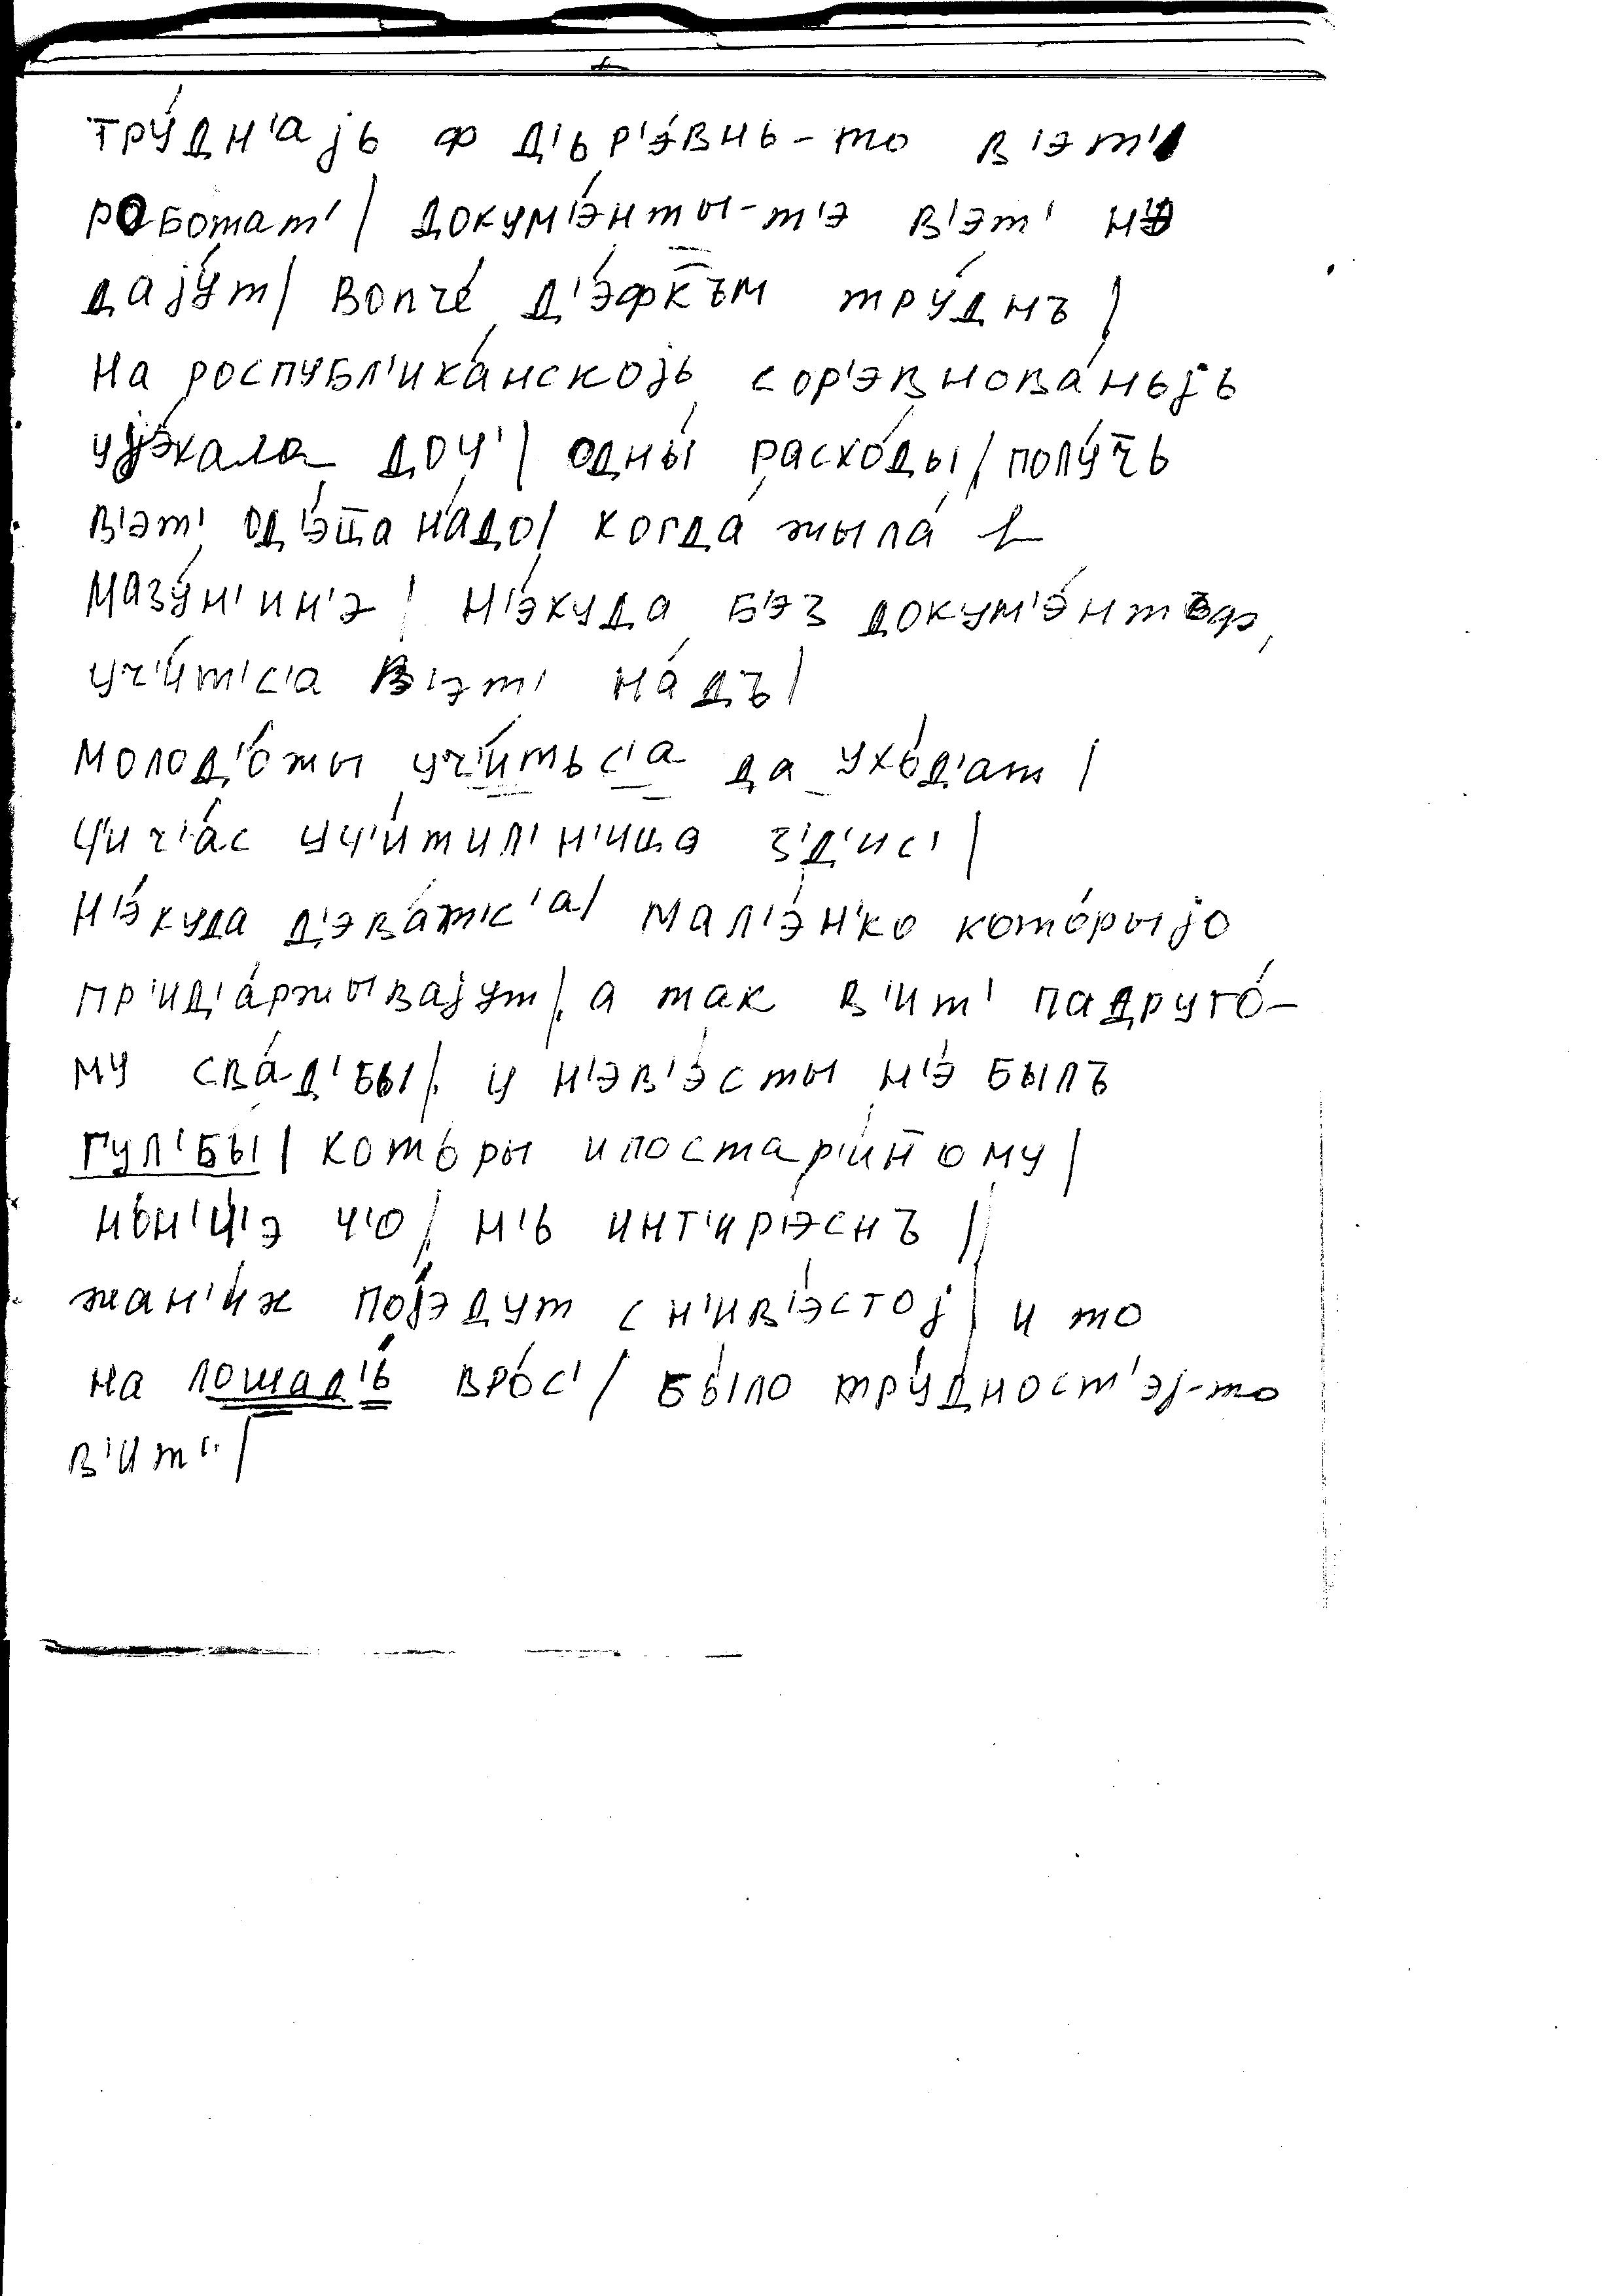 тру́дн'аjь ф д'ьр'э́внь-то в'эт'
роботат'/ докум'э́нты-т'э в'эт' н'э
даjу́т/ вопче́ д'э́фкъм тру́днъ/
на роспубл'ика́нскоjь сор'эвнова́ньjь
уjэ́хала доч'/ одны́ расхо́ды/ полу́чь
в'эт' од'э́ц̅а на́до/ когда́ жыла́ в
Мазу́н'ин'э/ н'э́куда б'эз докум'э́нтъф,
уч'и́т'с'а в'эт' на́дъ/
молод'о́жы уч'и́тьс'а да ухо́д'ат/
ч'ич'а́с уч'и́тил'н'ица з'д'ис'/
н'э́куда д'эва́тс'а/ мал'э́н'ко кото́рыjо
пр'ид'а́ржывajут/ а так в'ит' падруго́-
му сва́д'бы/ у н'эв'э́сты н'э́ былъ
гул'бы́/ которы и постар'и́нному/
но́н'ч'э ч'о/ н'ь инт'ир'э́снъ//
жан'и́х поjэ́дут с н'ив'э́стоj/ и то
на лошад'ь́ вро́с'/ бы́ло тру́дност'эj-то
в'ит'/